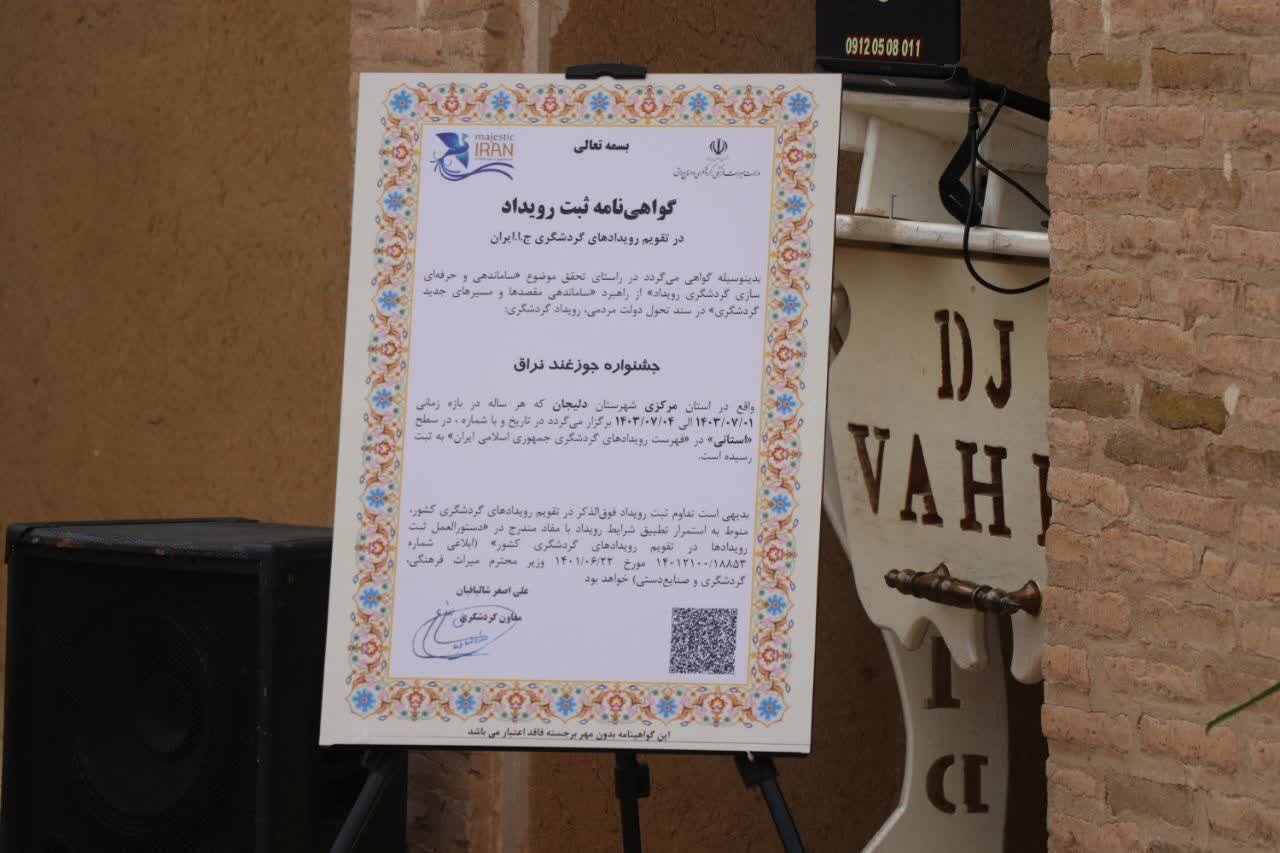 0912 05 08 011
majestic
IRAN
بسمه تعالی
گواهی‌نامه ثبت رویداد
در تقویم رویدادهای گردشگری ج.ا.ایران
بدینوسیله گواهی می‌گردد در راستای تحقق موضوع «ساماندهی و حرفه‌ای
سازی گردشگری رویداد» از راهبرد «ساماندهی مقصدها و مسیرهای جدید
گردشگری» در سند تحول دولت مردمی، رویداد گردشگری:
جشنواره جوزغند نراق
واقع در استان مرکزی شهرستان دلیجان که هر ساله در بازه زمانی
۱۴۰۳/۰۷/۰۱ الی ۱۴۰۳/۰۷/۰۴ برگزار می‌گردد در تاریخ و با شماره ، در سطح
«استانی» در «فهرست رویدادهای گردشگری جمهوری اسلامی ایران» به ثبت
رسیده است.
بدیهی است تداوم ثبت رویداد فوق‌الذکر در تقویم رویدادهای گردشگری کشور،
منوط به استمرار تطبیق شرایط رویداد با مفاد مندرج در «دستورالعمل ثبت
رویدادها در تقویم رویدادهای گردشگری کشور» (ابلاغی شماره
۱۴۰۱۲۱۰۰/۱۸۸۵۳ مورخ ۱۴۰۱/۰۶/۲۲ وزیر محترم میراث فرهنگی،
گردشگری و صنایع‌دستی) خواهد بود
علی اصغر شالبافیان
معاون گردشگری
این گواهینامه بدون مهر برجسته فاقد اعتبار می باشد
DJ
VAHI